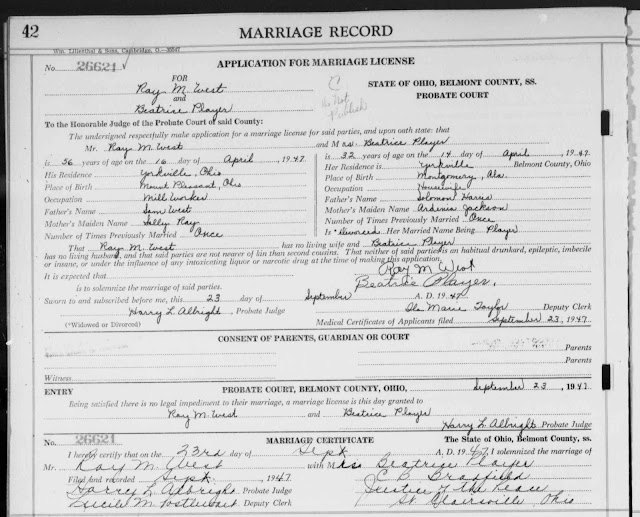 42 MARRIAGE RECORD
Wm. Lilienthal & Sons, Cambridge, O.
No. 26621 √ APPLICATION FOR MARRIAGE LICENSE
FOR
Ray M. West
and
Beatrice Player
C
do Not
Publish
STATE OF OHIO, BELMONT COUNTY, SS.
PROBATE COURT
To the Honorable Judge of the Probate Court of said County:
The undersigned respectfully make application for a marriage license for said parties, and upon oath state: that
Mr. Ray M. West and Mrs. Beatrice Player
is 56 years of age on the 16 day of April 1947. is 32 years of age on the 14 day of April, 1947.
His Residence is Yorkville, Ohio Her Residence is Yorkville Belmont County, Ohio
Place of Birth Mount Pleasant, Ohio Place of Birth Montgomery, Ala.
Occupation Mill Worker Occupation Housewife
Father's Name Sam West Father's Name Solomon Harris
Mother's Maiden Name Sally Ray Mother's Maiden Name Jackson
Number of Times Previously Married Once Number of Times Previously Married Once
Is *Divorced Her Married Name Being Player
That Ray M. West has no living wife and Beatrice Player
has no living husband, and that said parties are not nearer of kin than second cousins. That neither of said parties is an habitual drunkard, epileptic, imbecile
or insane, or under the influence of any intoxicating liquor or narcotic drug at the time of making this application.
Ray M West
It is expected that
Beatrice Player.
is to solemnize the marriage of said parties.
Sworn to and subscribed before me, this 23 day of September A. D. 1947.
Harry L. Albright, Probate Judge Ola Marie Taylor Deputy Clerk
(*Widowed or Divorced) Medical Certificates of Applicants filed September 23, 1947
CONSENT OF PARENTS, GUARDIAN OR COURT
Parents
Parents
Witness
ENTRY PROBATE COURT, BELMONT COUNTY, OHIO, September 23, 1947
Being satisfied there is no legal impediment to their marriage, a marriage license is this day granted to
Ray M. West and Beatrice Player
Harry L. Albright Probate Judge
No. 26621 MARRIAGE CERTIFICATE The State of Ohio, Belmont County, ss.
I hereby certify that on the 23rd day of Sept. A. D. 1947, I solemnized the marriage of
Mr. Ray M. West with Mrs. Beatrice Player
Filed and recorded Sept. 1947. C. B. Bradfield
Harry L. Albright Probate Judge Justice of the Peace
Lucile M. Postlewait Deputy Clerk St. Clairsville, Ohio